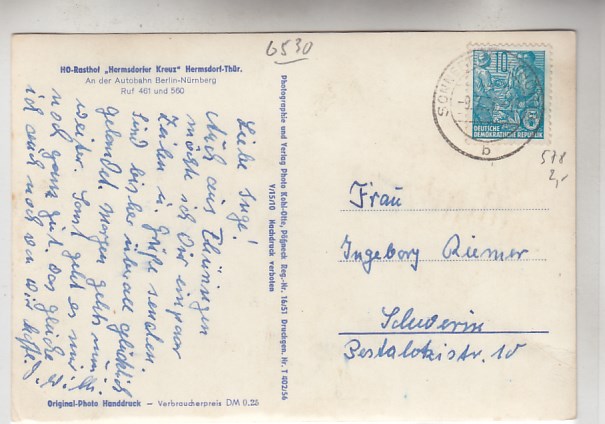 6530
HO-Rasthof „Hermsdorfer Kreuz" Hermsdorf-Thür.
An der Autobahn Berlin-Nürnberg
Ruf 461 und 560
Liebe Inge!
Auch aus Thüringen
möchte ich Dir ein paar
Zeilen u. Grüße senden.
Sind bis hier überall glücklich
gelandet. Morgen gehts nun
weiter. Sonst geht es mir
noch ganz gut. Das gleiche
ich auch noch von Dir hoffe.
Original-Photo Handdruck — Verbraucherpreis DM 0.25
Photographie und Verlag Photo Kohl-Otto, Pößneck Reg.-Nr. 16/51 Druckgen. Nr. T 402/56
V/15/10 Nachdruck verboten
10
5
DEUTSCHE
DEMOKRATISCHE REPUBLIK
b
578
2,-
Frau
Ingeborg Riemer
Schwerin
Pestalotzistr. 10